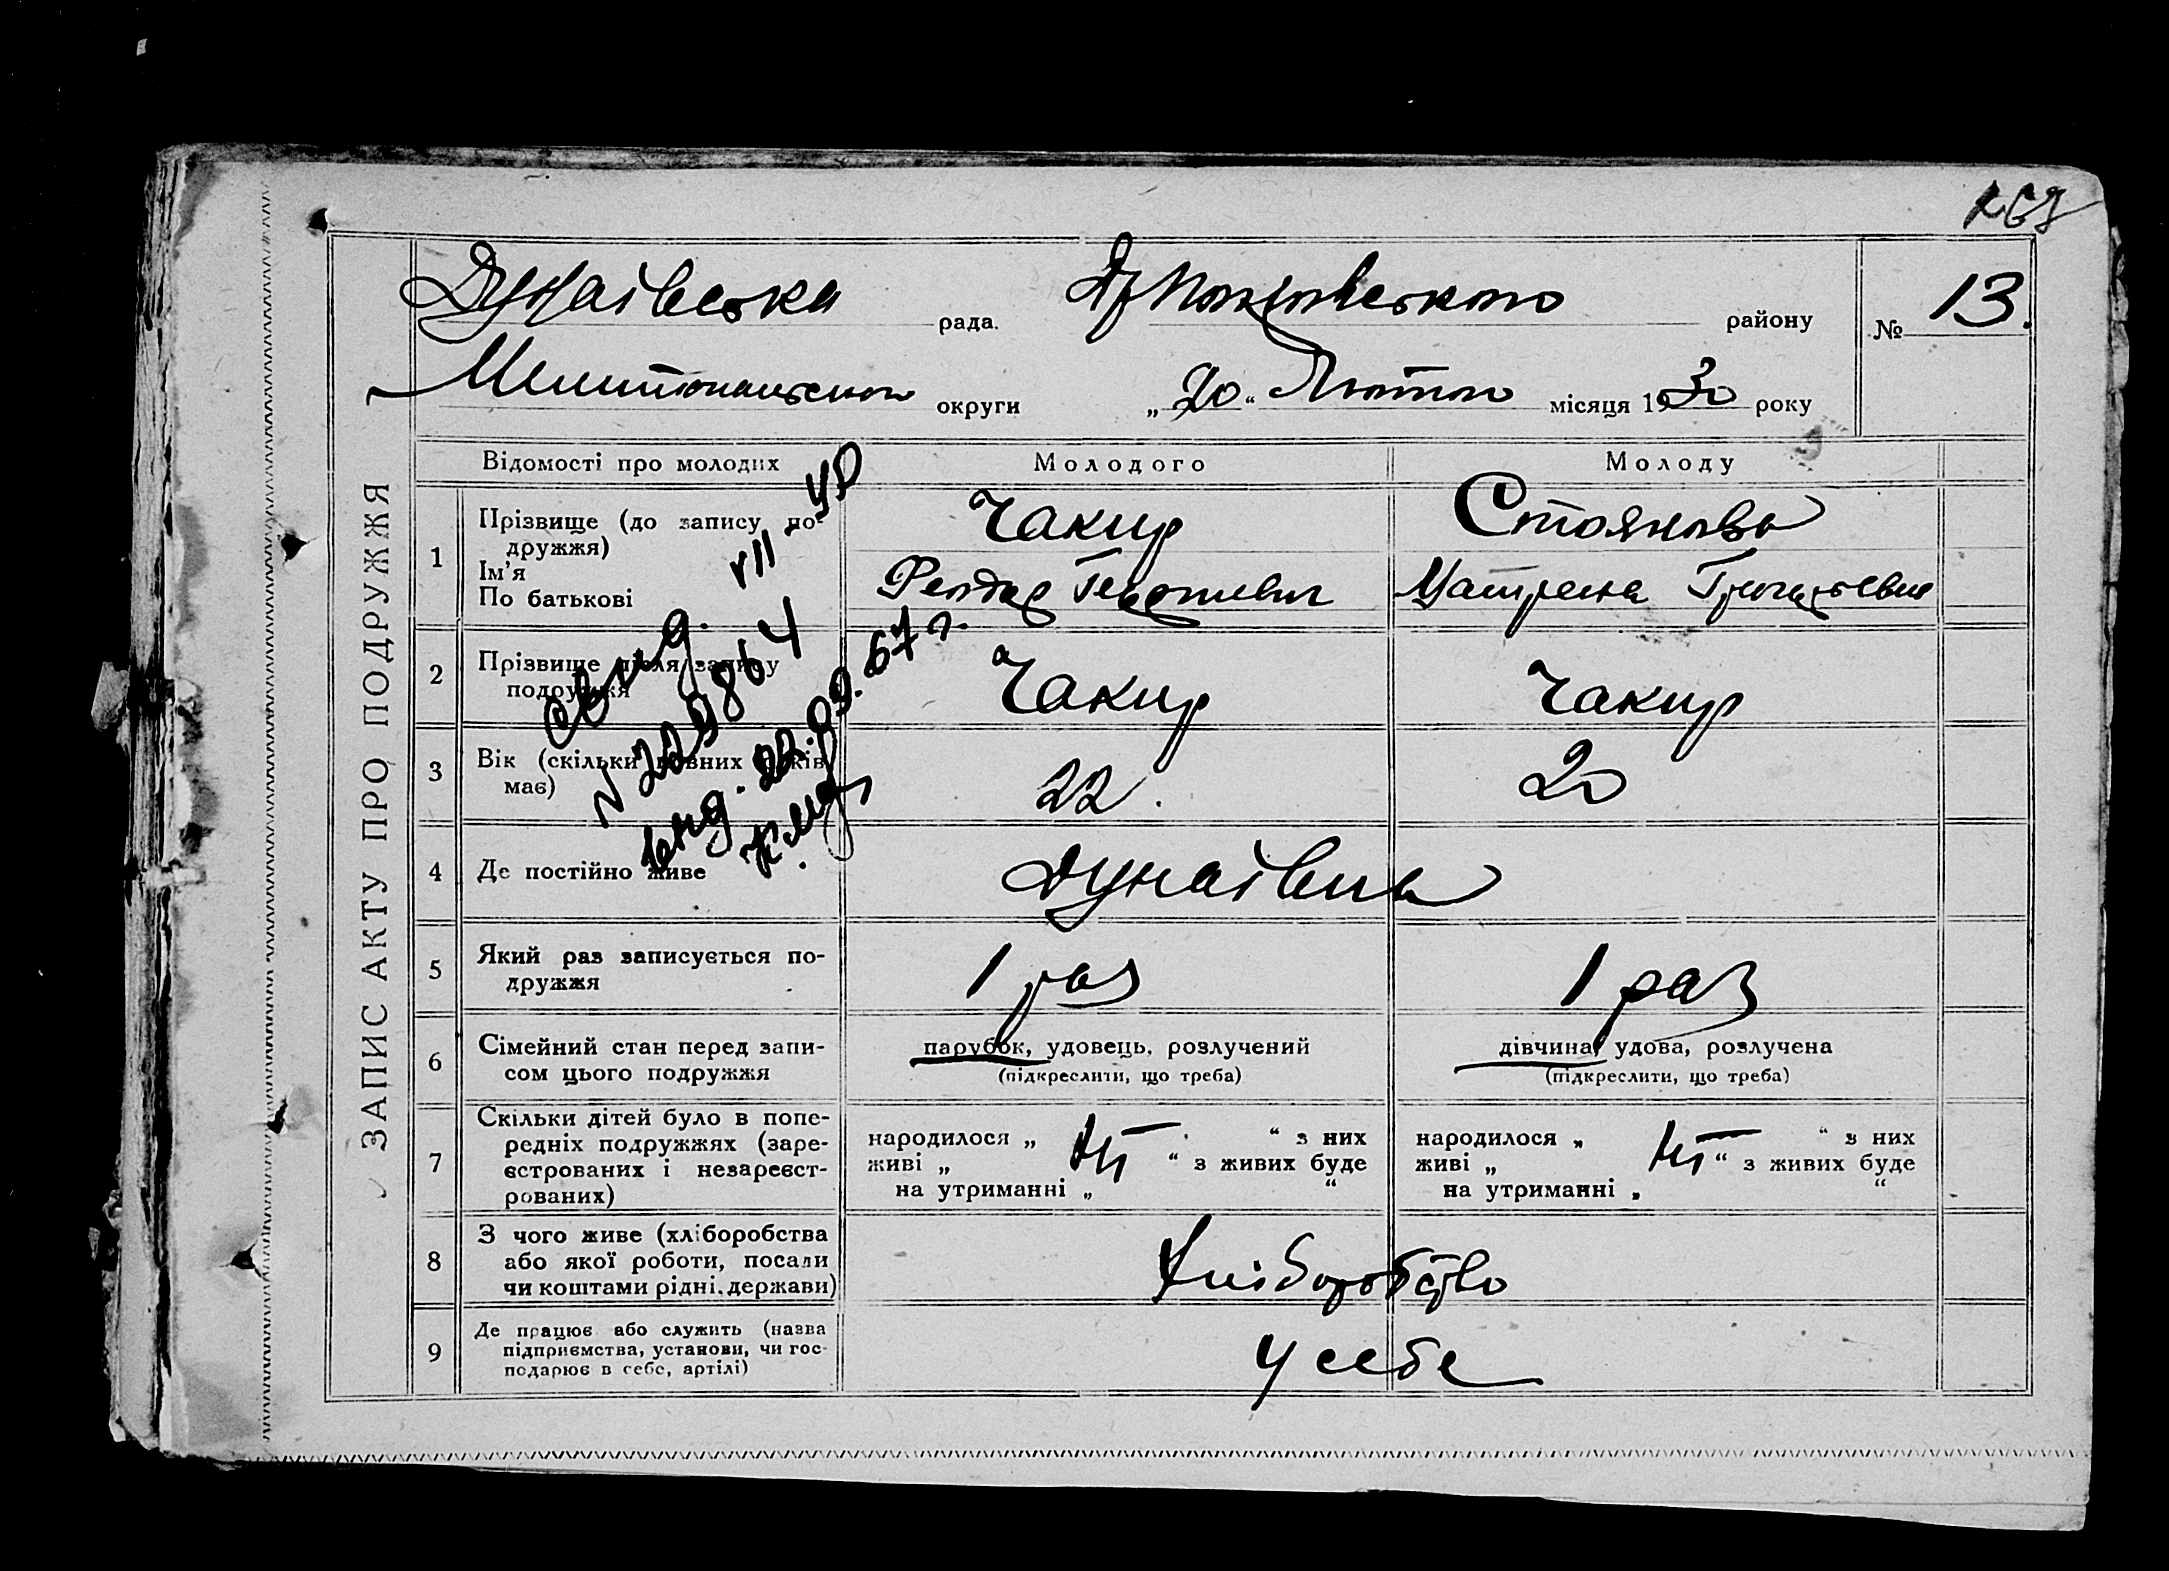 Дунаївська рада. району № 13.
Мелитопольської округи „20“ Лютого місяця 1930 року
ЗАПИС АКТУ ПРО ПОДРУЖЖЯ
Відомості про молодих Молодого Молоду
1 Прізвище (до запису по-
дружжя) Чакир Стоянова
Ім’я
По батькові
2 Прізвище після запису
подружжя Чакир Чакир
3 Вік (скільки повних років
має) 22. 20
4 Де постійно живе Дунаївка
5 Який раз записується по-
дружжя 1 раз 1 раз
6 Сімейний стан перед запи-
сом цього подружжя
парубок, удовець, розлучений
(підкреслити, що треба)
дівчина, удова, розлучена
(підкреслити, що треба)
7 Скільки дітей було в попе-
редніх подружжях (заре-
єстрованих і незареєст-
рованих)
народилося „ “ з них
живі „ “ з живих буде
на утриманні „ “
народилося „ “ з них
живі „ “ з живих буде
на утриманні „ “
8 З чого живе (хліборобства
або якої роботи, посади
чи коштами рідні, держави) Хліборобство
9 Де працює або служить (назва
підприємства, установи, чи гос-
подарює в себе, артілі) У себе
свид. VII-УР
N 229864
выд. 22.09.67 г.